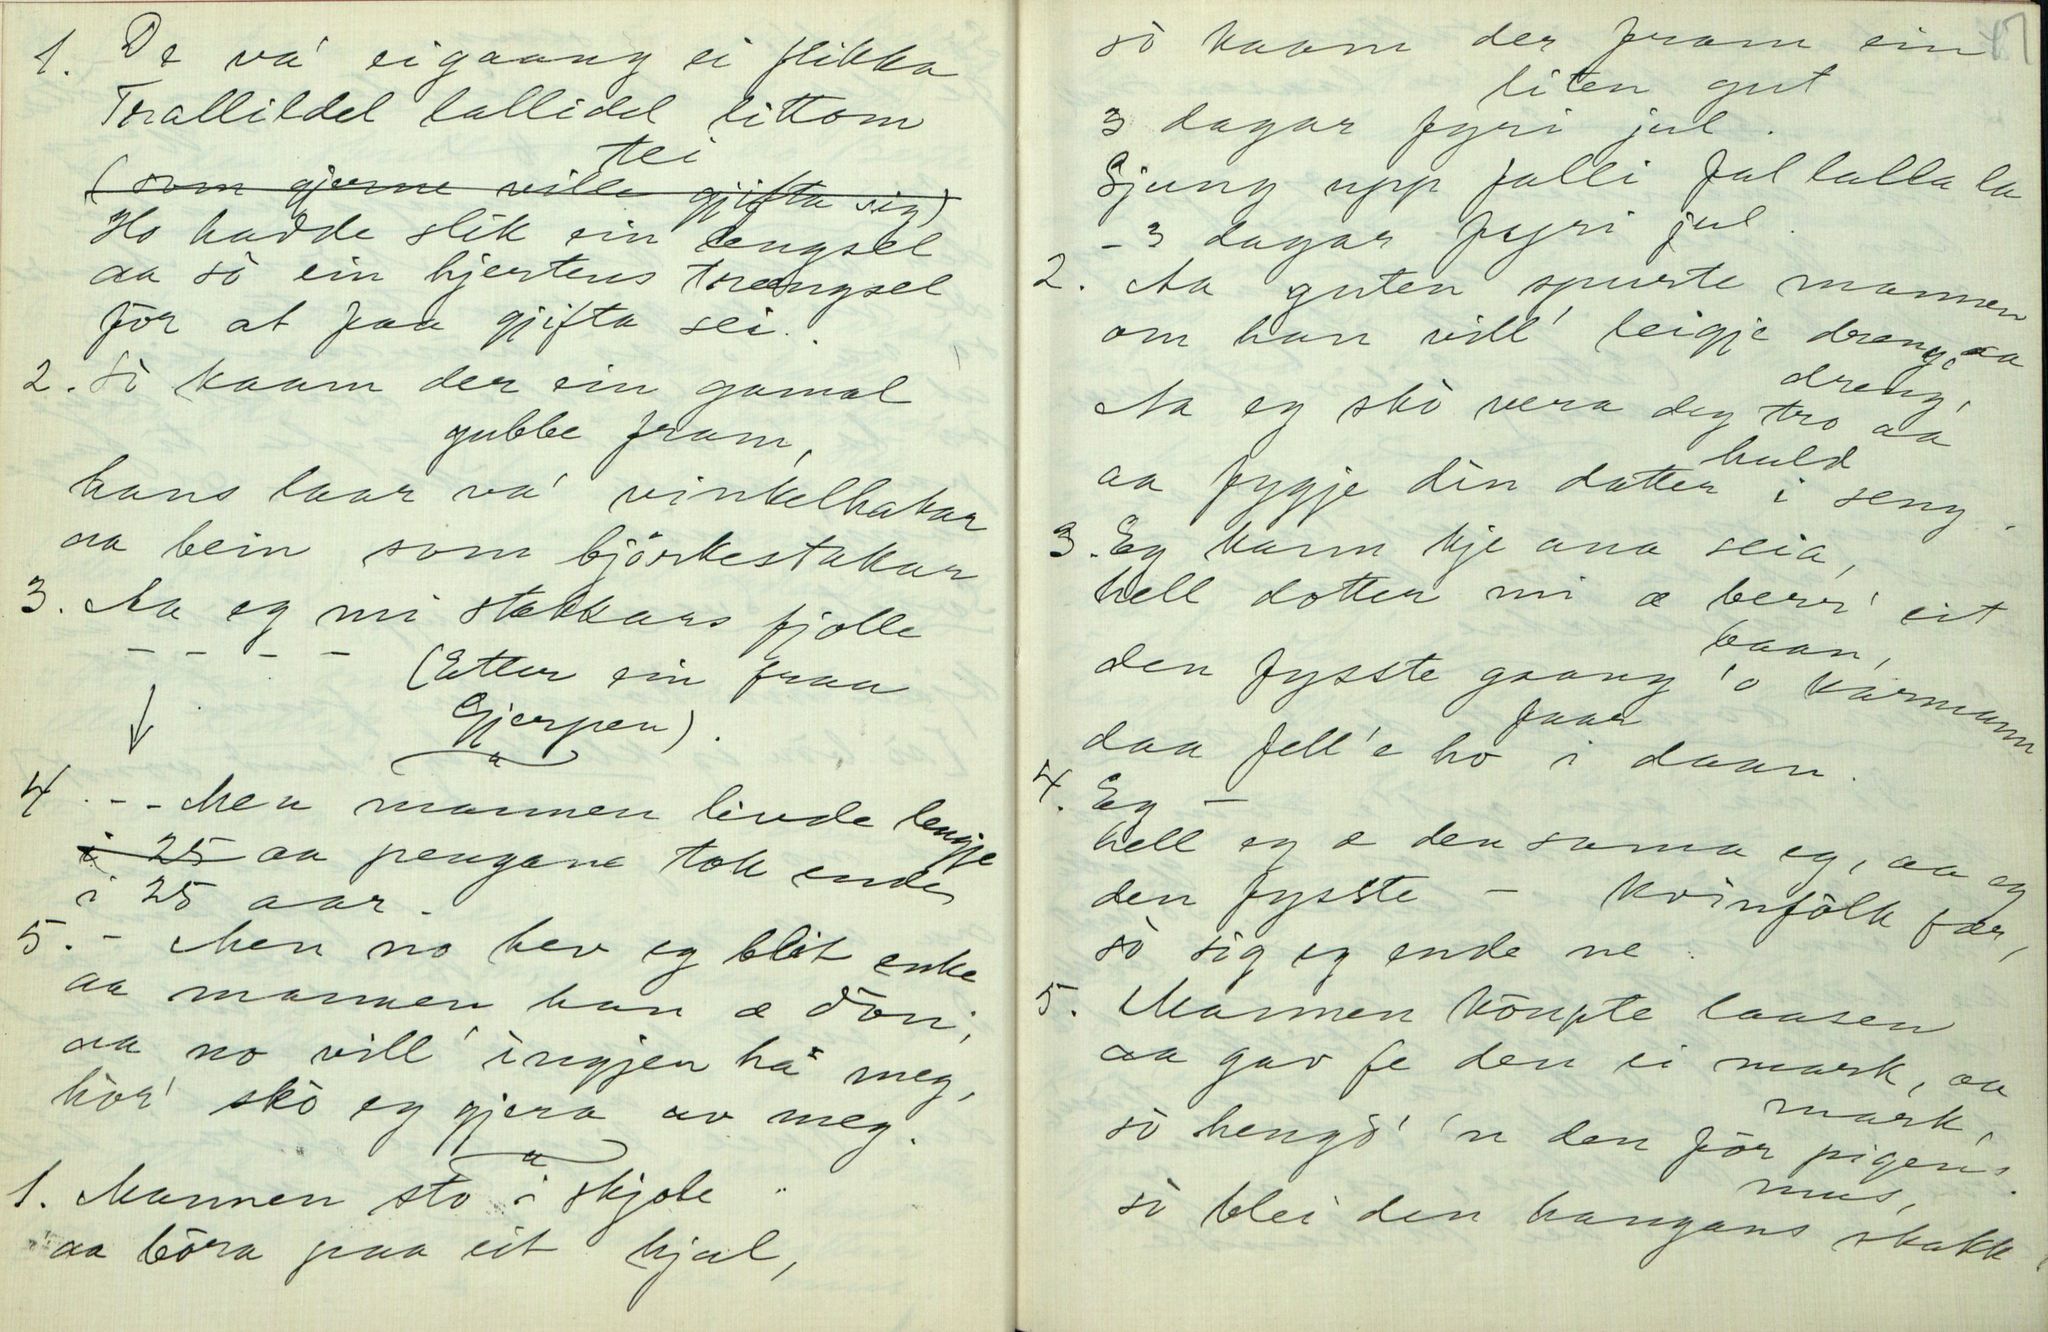 1. De va' eigaang ei flikka
Trallildel lallidel littom
tei
(som gjerne ville gjifta sig)
Ho hadde slik ein længsel
aa sò ein hjertens trængsel
før at faa gjifta sei.
2. Sò kaam der ein gamal
gubbe fram,
hans laar va' vinkelhakar
aa bein som bjørkestakar
3. Aa eg mi stakkars fjolle
- - - - (Etter ein fraa
Gjerpen).
4. - - Men mannen livde lengje
i 25 aa pengane tok ende,
i 25 aar.
5. - Men no hev eg blit enke
aa mannen han æ dòn;
aa no vill' ingjen ha meg,
hòr' skò eg gjera av meg.
1. Mannen sto i skjole
aa bòra paa eit hjul,
47
sò kaam der fram ein
liten gut
3 dagar fyri jul.
Sjung upp falli fallalla la
- 3 dagar fyri jul.
2. Aa guten spurte mannen
om han vill' leigje dreng, aa
dreng,
Aa eg skò vera deg tro aa
huld
aa fygje din dotter i seng.
3. Eg kann kje ana seia,
hell dotter mi æ berr' eit
baan,
den fysste gaang 'o karmann
faar
daa fell'e ho i daan.
4. Eg -
hell eg æ den sama eg, aa eg
den fysste - kvinfòlk fær,
sò sig eg ende ne.
5. Mannen kòupte laasen
aa gav fe den ei mark, aa
mark,
sò hengd' 'n den før pigens
mus,
sò blei den hangans skakk.